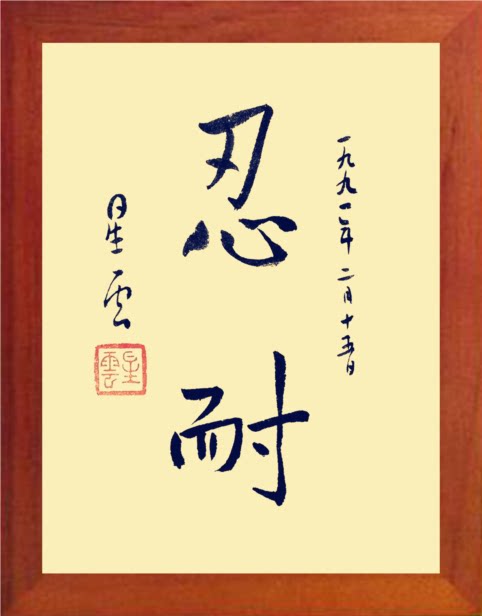 一九九一年 二月十五日
忍耐
星雲
星雲